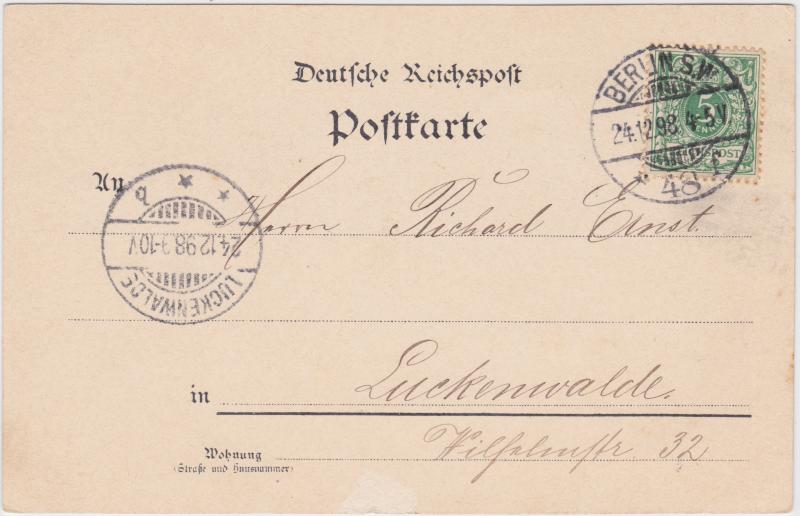 Deutsche Reichspost
Postkarte
BERLIN S.W.
24.12.98. 4-5V
* 48 f
5
POST
An
Herrn Richard Ernst.
q * *
24.12.98.9-10V
LUCKENWALDE
in Luckenwalde.
Wohnung Wilhelmstr. 32
(Straße und Hausnummer)